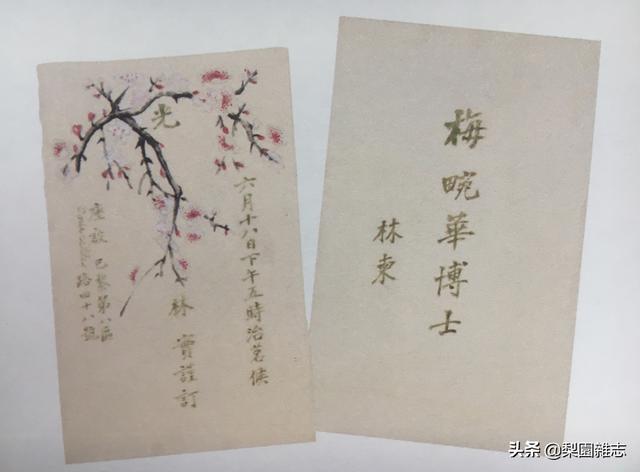 六月十八日下午五時治茗候
光
林 實謹訂
座設巴黎第八區
路四十八號
梅畹華博士
林柬
头条 @梨園雜志